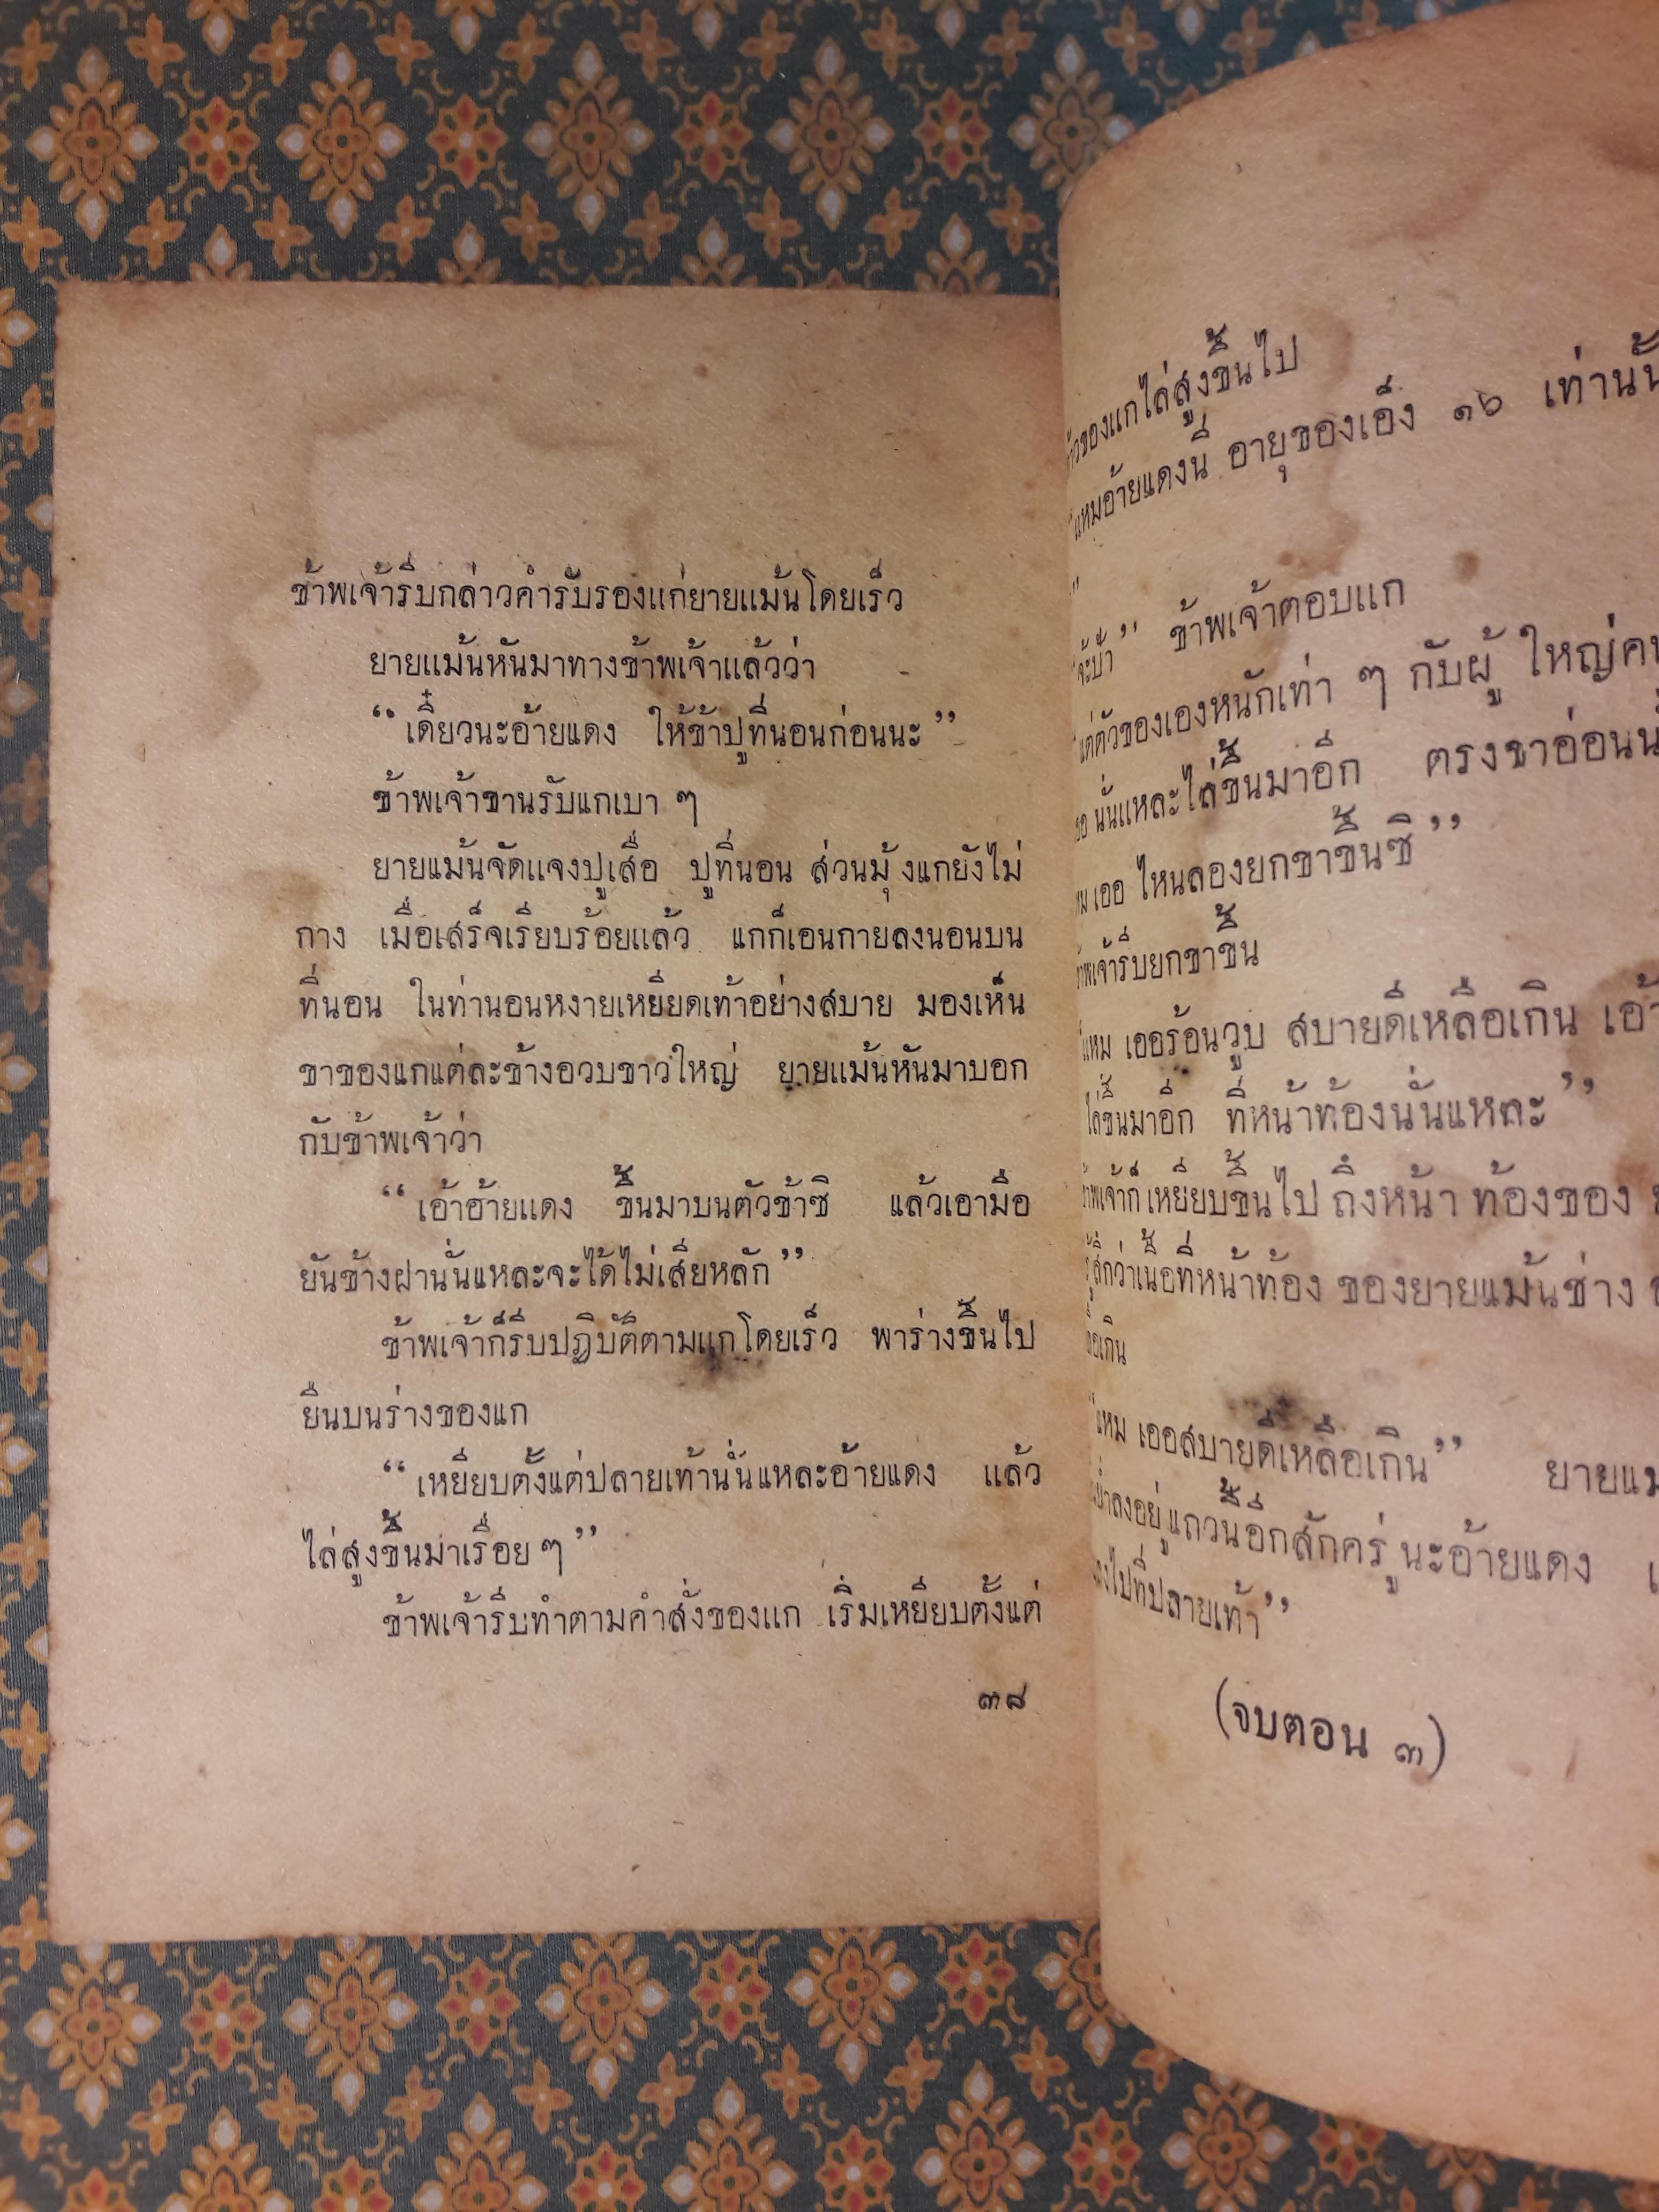 ข้าพเจ้ารีบกล่าวคำรับรองแก่ยายแม้นโดยเร็ว
ยายแม้นหันมาทางข้าพเจ้าแล้วว่า
“เดี๋ยวนะอ้ายแดง ให้ข้าปูที่นอนก่อนนะ”
ข้าพเจ้าขานรับแกเบา ๆ
ยายแม้นจัดแจงปูเสื่อ ปูที่นอน ส่วนมุ้งแกยังไม่
กาง เมื่อเสร็จเรียบร้อยแล้ว แกก็เอนกายลงนอนบน
ที่นอน ในท่านอนหงายเหยียดเท้าอย่างสบาย มองเห็น
ขาของแกแต่ละข้างอวบขาวใหญ่ ยายแม้นหันมาบอก
กับข้าพเจ้าว่า
“เอ้าอ้ายแดง ขึ้นมาบนตัวข้าซิ แล้วเอามือ
ยันข้างฝานั่นแหละจะได้ไม่เสียหลัก”
ข้าพเจ้าก็รีบปฏิบัติตามแกโดยเร็ว พาร่างขึ้นไป
ยืนบนร่างของแก
“เหยียบตั้งแต่ปลายเท้านั่นแหละอ้ายแดง แล้ว
ไล่สูงขึ้นมาเรื่อย ๆ”
ข้าพเจ้ารีบทำตามคำสั่งของแก เริ่มเหยียบตั้งแต่
๓๘
ของแกไล่สูงขึ้นไป
แหมอ้ายแดงนี่ อายุของเอ็ง ๑๖ เท่านั้น
จ้ะป้า” ข้าพเจ้าตอบแก
แต่ตัวของเองหนักเท่า ๆ กับผู้ใหญ่
นั่นแหละไล่ขึ้นมาอีก ตรงขาอ่อน
เออ ไหนลองยกขาขึ้นซิ”
ข้าพเจ้ารีบยกขาขึ้น
แหม เออร้อนวูบ สบายดีเหลือเกิน เอ้า
ไล่ขึ้นมาอีก ที่หน้าท้องนั่นแหละ”
ข้าพเจ้าก็เหยียบขึ้นไป ถึงหน้าท้องของ
รู้สึกว่าเนื้อที่หน้าท้อง ของยายแม้นช่าง
แหม เออสบายดีเหลือเกิน” ยายแม้
อยู่แถวนี้อีกสักครู่นะอ้ายแดง
ลงไปที่ปลายเท้า”
(จบตอน ๓)